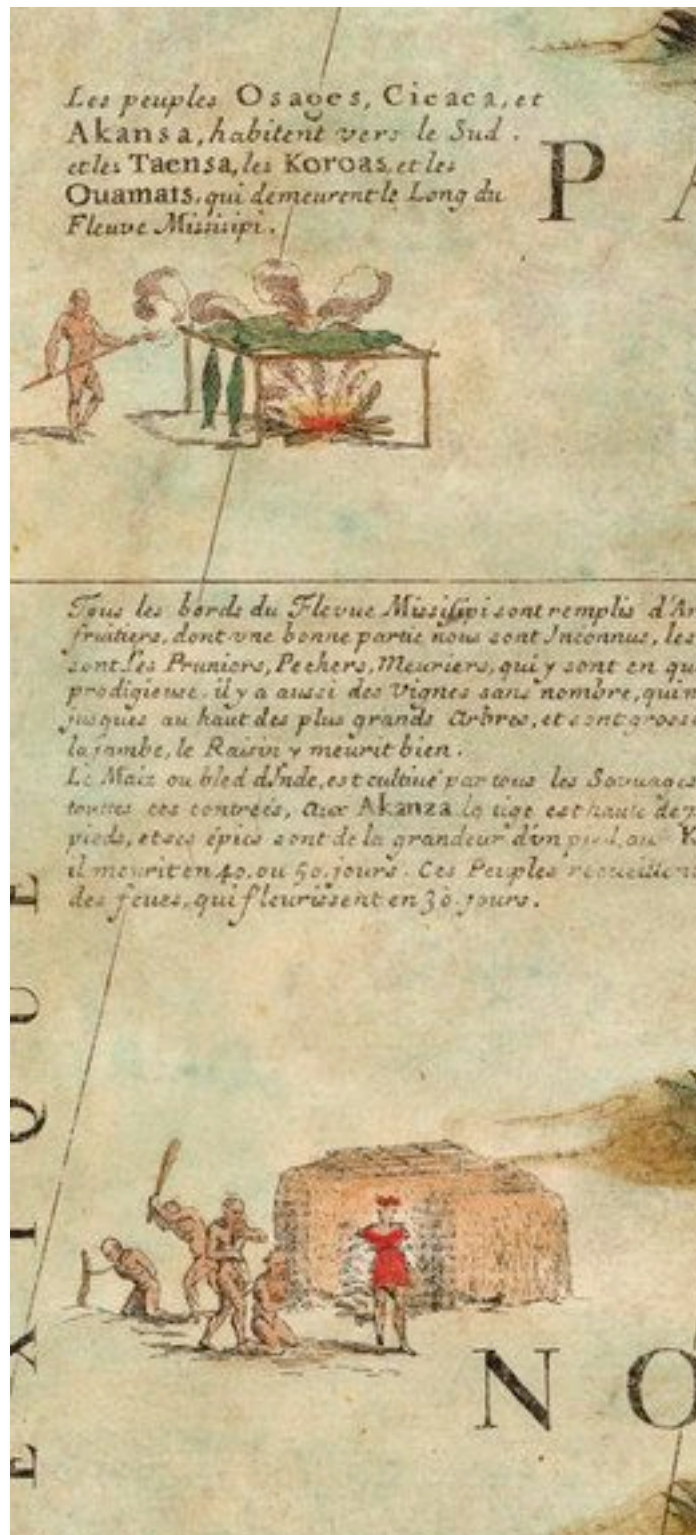 Les peuples Osages, Cicaca, et
Akansa, habitent vers le Sud.
et les Taensa, les Koroas, et les
Ouamats, qui demeurent le Long du
Fleuve Missisipi.
P A
Tous les bords du Flevue Missisipi sont remplis d'Ar
fruitiers, dont vne bonne partie nous sont Jnconnus, les
sont les Pruniers, Pechers, Meuriers, qui y sont en qu
prodigieuse. il y a aussi des Vignes sans nombre, qui m
jusques au haut des plus grands Arbres, et sont grosse
la jambe, le Raisin y meurit bien.
Le Maiz ou bled d'Jnde, est cultiué par tous les Sauuages
touttes ces contreés, Aux Akanza la tige est haute de
pieds, et ses épics sont de la grandeur d'vn pied, au
il meurit en 40. ou 50. jours. Ces Peuples recueillent
des feues, qui fleurissent en 30. jours.
EXIQUE
NO